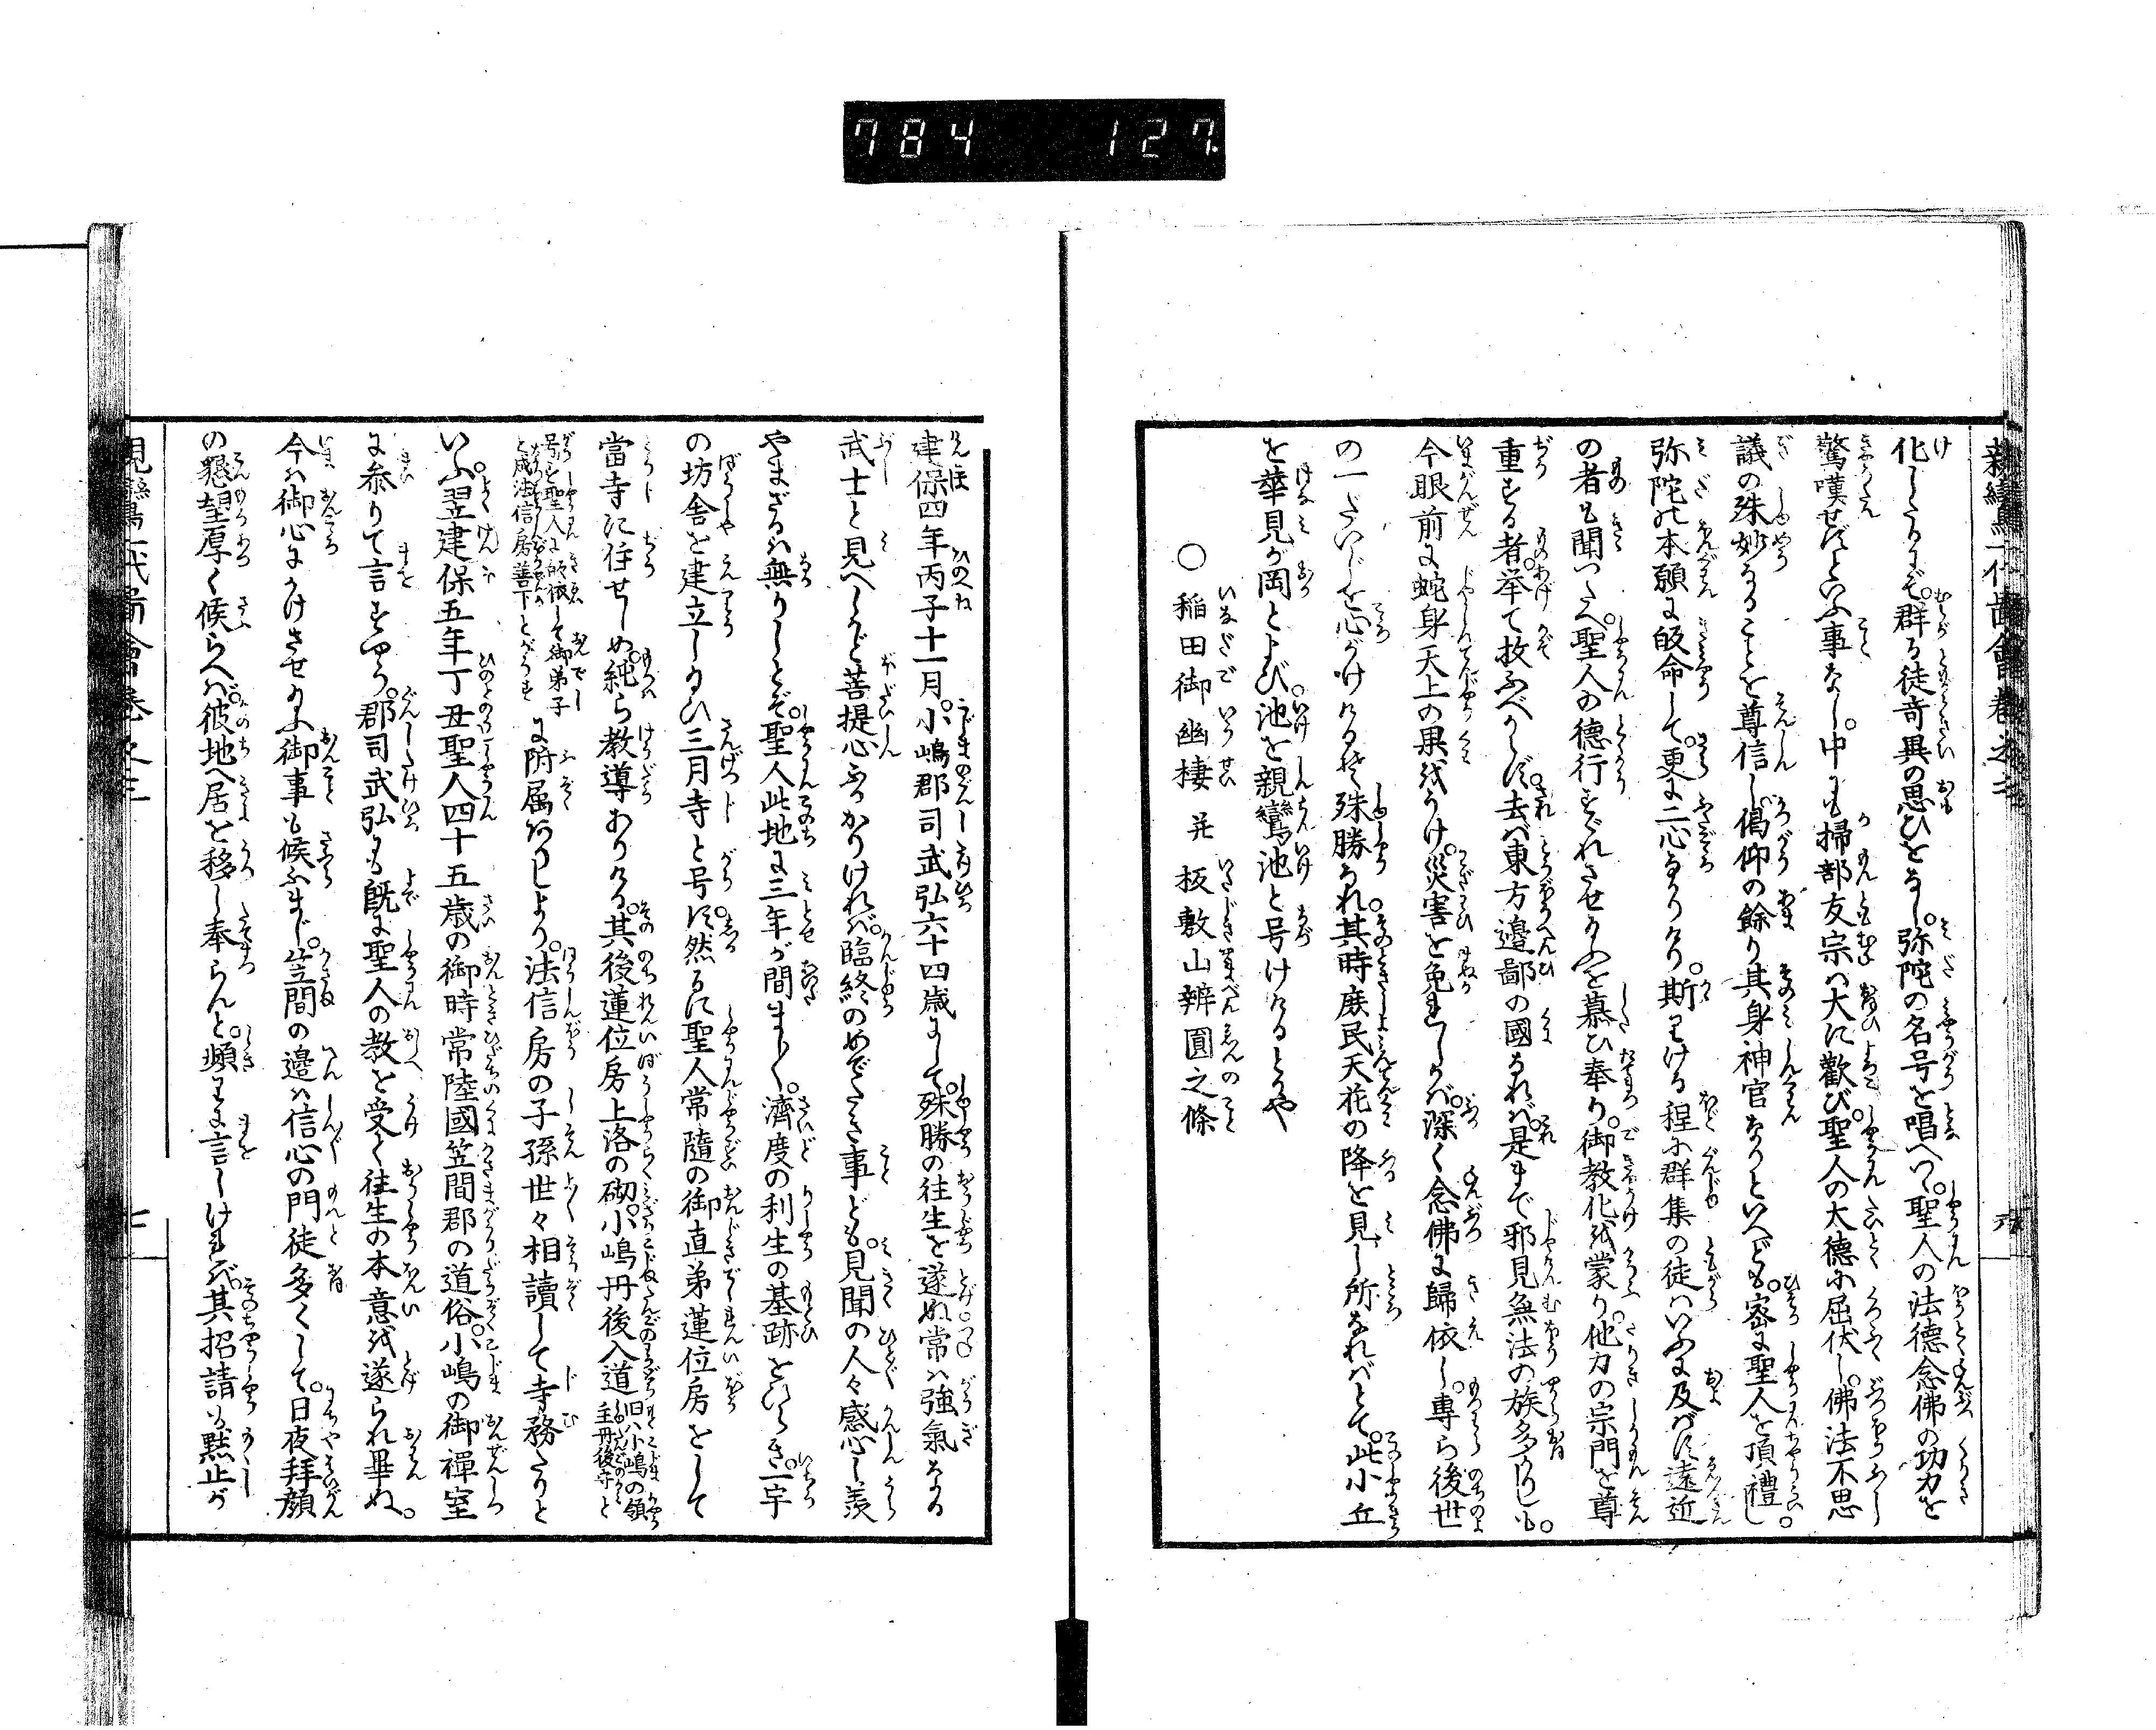 784 127
親鸞一代啚會巻之三 六
化したりにぞ。群る徒奇異の思ひをなし。弥陀の名号を唱へつゝ。聖人の法德念佛の功力を
驚嘆せずといふ事なし。中にも掃部友宗ハ大に歡び。聖人の大德に屈伏し。佛法不思
議の殊妙なることを尊信し。偈仰の餘り其身神官なりといへども。密に聖人を頂禮し。
弥陀の本願に皈命して。更に二心なかりけり。斯りける程に群集の徒ハいふに及ばず遠近
の者も聞つたへ。聖人の德行すぐれさせ給ふを慕ひ奉り。御教化を蒙り。他力の宗門を尊
重する者。挙て技ふべからず。去バ東方邉鄙の國なれバ。是まで邪見無法の族多かりしも。
今眼前に蛇身天上の果をうけ。災害を免れしかバ。深く念佛に歸依し。専ら後世
の一大事を心がけけるぞ殊勝なれ。其時庶民天花の降を見し所なればとて。此小丘
を華見が岡とよび。池を親鸞池と号けけるとかや
〇稲田御幽棲并板敷山辨圓之條
建保四年丙子十一月。小嶋郡司武弘六十四歳にして。殊勝の往生を遂ぬ常ハ強氣なる
武士と見へしかど菩提心ふかかりけれバ。臨終のめでたき事ども。見聞の人々感心し羨
やまざるハ無りしとぞ。聖人此地に三年が間まし〱。濟度の利生の基跡をひらき。一宇
の坊舎を建立し給ひ三月寺と号ず。然るに聖人常隨の御直弟蓮位房をして
當寺に住せしめ。純ら教導ありける。其後蓮位房上洛の砌。小嶋丹後入道旧ハ小嶋の領主丹後守と
号す聖人に皈依して御弟子と成法信房善下とがうすに附属ありしより。法信房の子孫世々相讀して寺務たりと
いふ。翌建保五年丁丑聖人四十五歳の御時常陸國笠間郡の道俗。小嶋の御禪室
に参りて言すやう。郡司武弘も既に聖人の教を受く往生の本意を遂られ畢ぬ。
今ハ御心にかけさせ給ふ御事も候ふまじ。笠間の邉ハ信心の門徒多くして。日夜拜顔
の懇望厚く候らへバ。彼地へ居を移し奉らんと。頻りに言しけれバ。其招請も黙止が
親鸞一代啚會巻之三 七